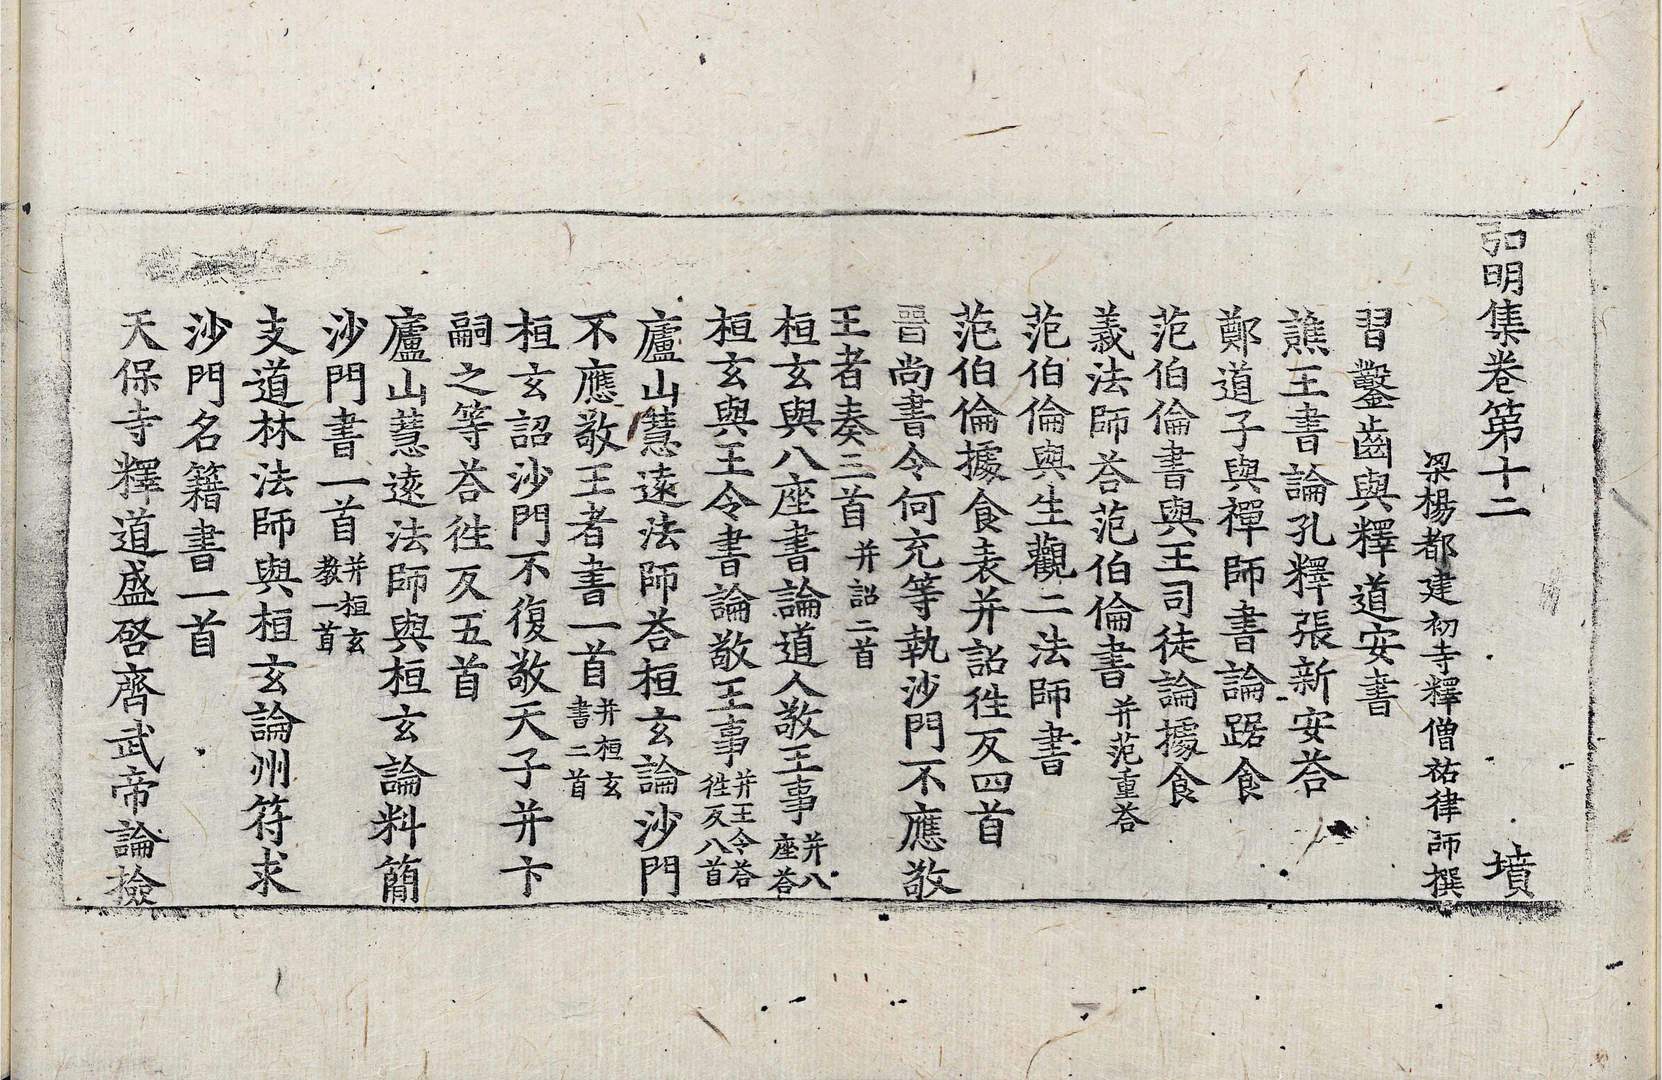 弘明集卷第十二　墳
梁楊都建初寺釋僧祐律師撰
習鑿齒與釋道安書
譙王書論孔釋張新安荅
鄭道子與禪師書論踞食
范伯倫書與王司徒論據食
義法師荅范伯倫書并范重荅
范伯倫與生觀二法師書
范伯倫據食表并詔徃反四首
晉尚書令何充等執沙門不應敬
王者奏三首并詔二首
桓玄與八座書論道人敬王事并八座荅
桓玄與王令書論敬王事并王令荅徃反八首
廬山慧遠法師荅桓玄論沙門
不應敬王者書一首并桓玄書二首
桓玄詔沙門不復敬天子并卞
嗣之等荅徃反五首
廬山慧遠法師與桓玄論料簡
沙門書一首并桓玄教一首
支道林法師與桓玄論州符求
沙門名籍書一首
天保寺釋道盛啓齊武帝論撿